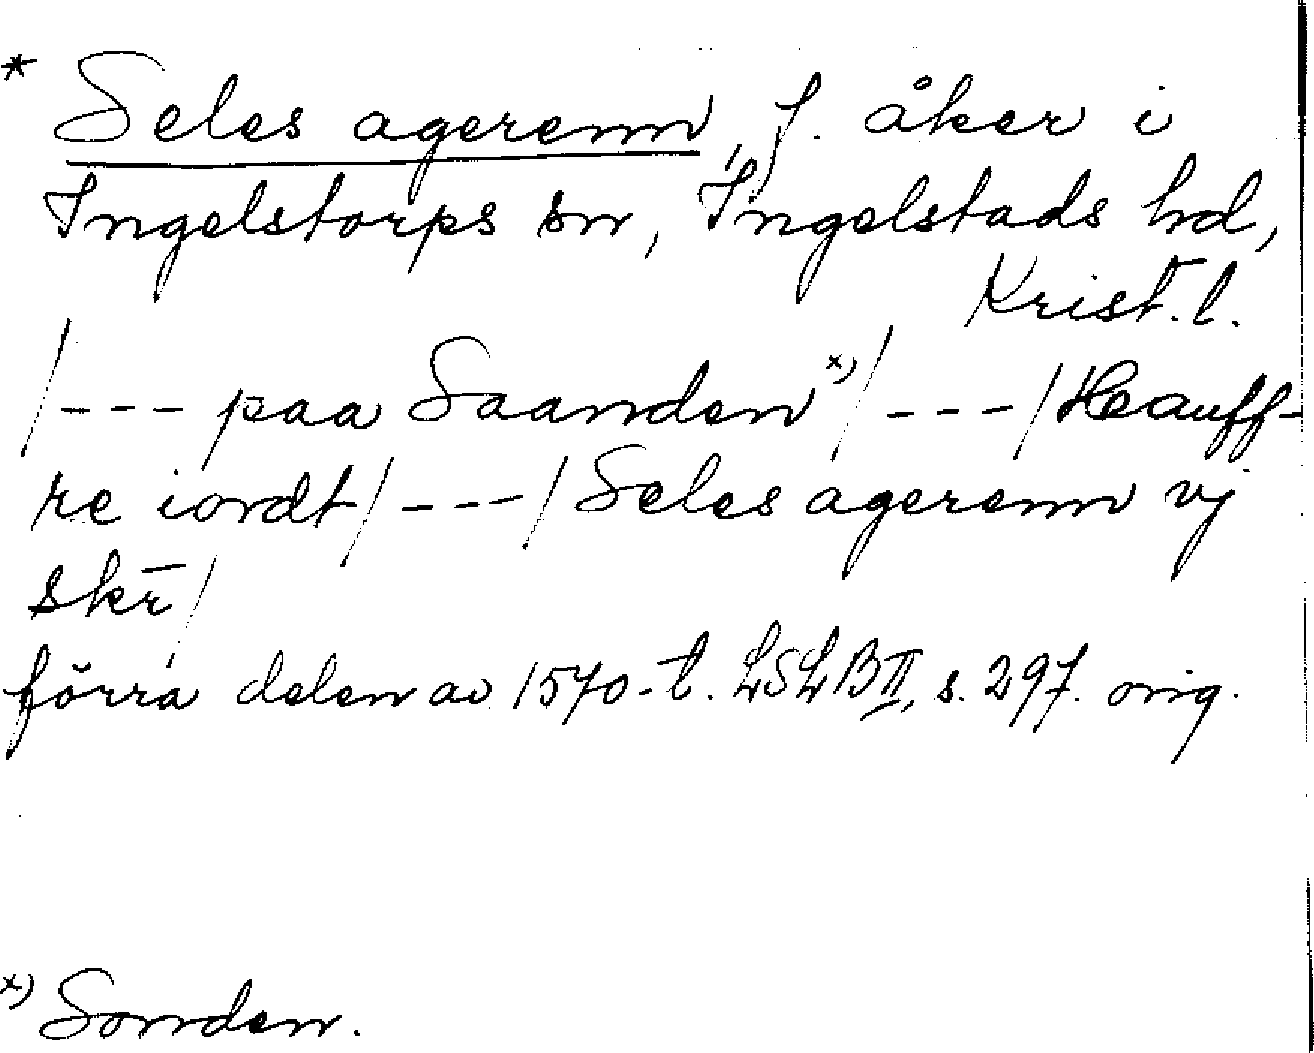 * Seles agerenn, f. åker i
Ingelstorps sn, Ingelstads hd,
Krist. l.
/--- paa Saanden x) / --- / Heauff-
re iordt / --- / Seles agerenn vj
skr̄ /
förra delen av 1570-t. LSLB II, s. 297. orig.
x) Sonden.